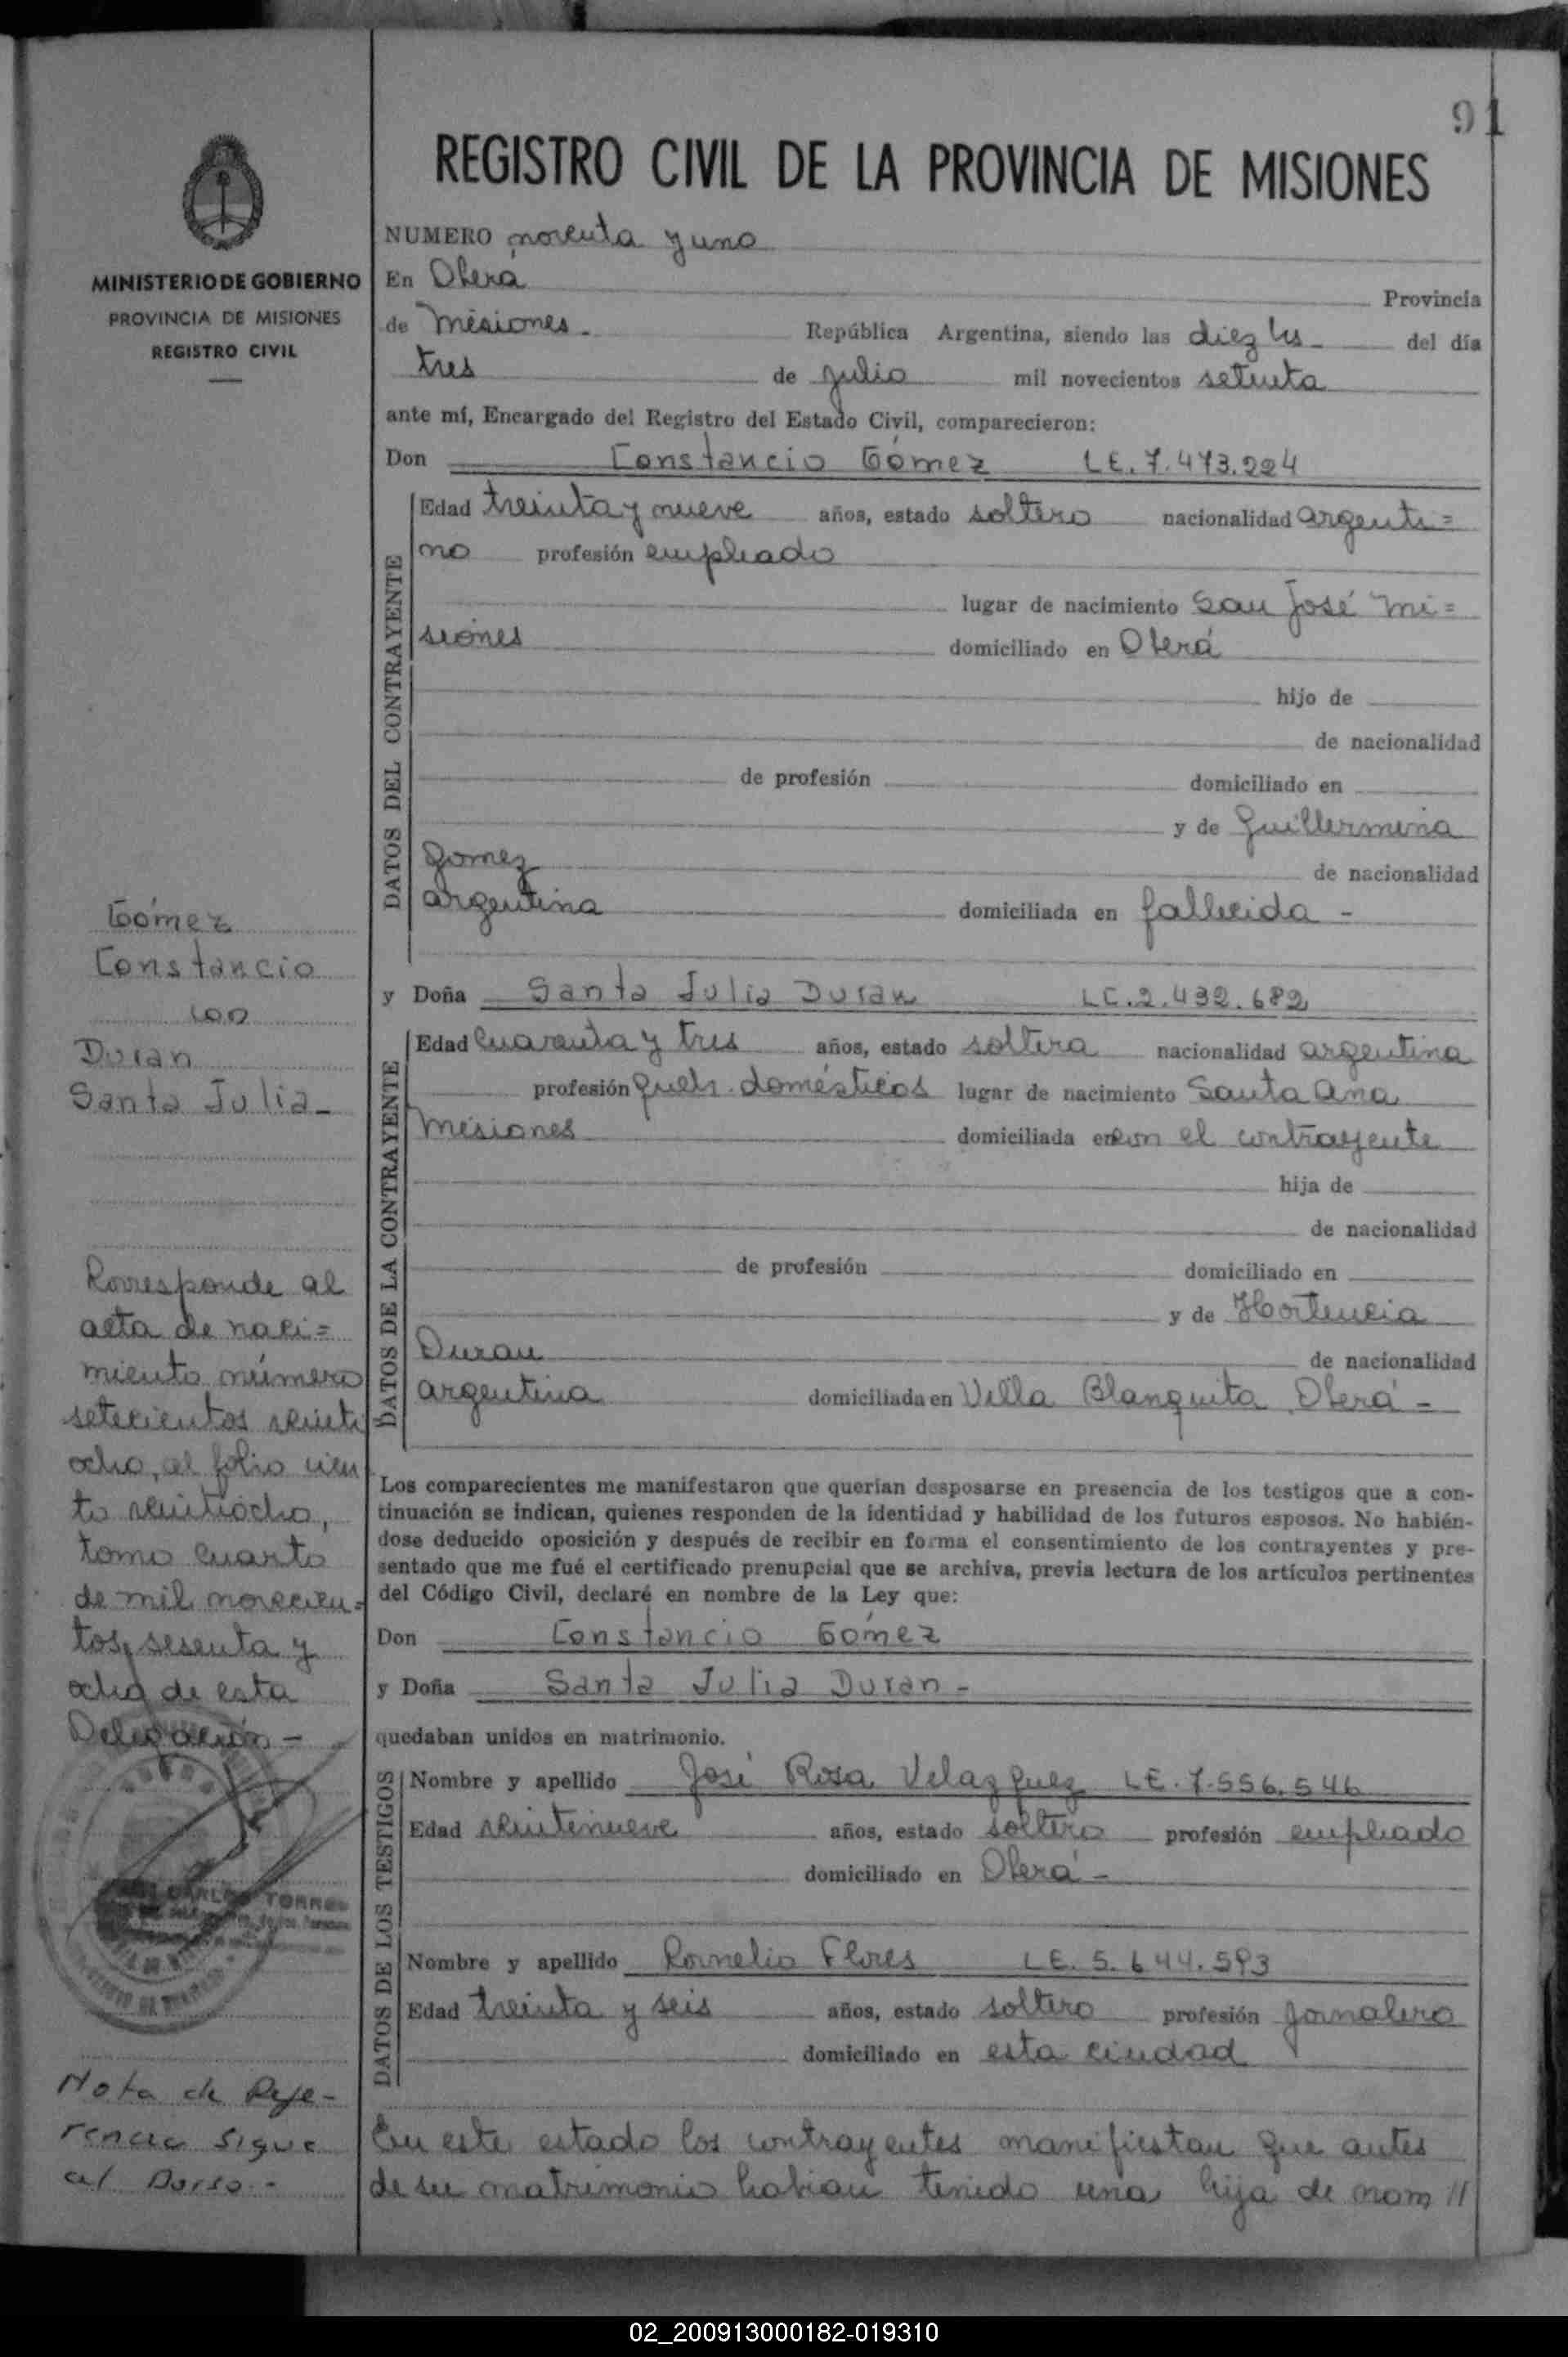 91
REGISTRO CIVIL DE LA PROVINCIA DE MISIONES
MINISTERIO DE GOBIERNO
PROVINCIA DE MISIONES
REGISTRO CIVIL
NUMERO noventa y uno
En Oberá Provincia
de Misiones.- República Argentina, siendo las diez hs - del día
tres de julio mil novecientos setenta
ante mí, Encargado del Registro del Estado Civil, comparecieron:
Don Constancio Gómez LE. 7.473.224
DATOS DEL CONTRAYENTE
Edad treinta y nueve años, estado soltero nacionalidad argenti=
no profesión empleado
lugar de nacimiento San José Mi=
siones domiciliado en Oberá
hijo de
de nacionalidad
de profesión domiciliado en
y de Guillermina
Gomez de nacionalidad
argentina domiciliada en fallecida -
y Doña Santa Julia Duran LC. 2.432.682
DATOS DE LA CONTRAYENTE
Edad cuarenta y tres años, estado soltera nacionalidad argentina
profesión queh. domésticos lugar de nacimiento Santa Ana
Misiones domiciliada en con el contrayente
hija de
de nacionalidad
de profesión domiciliado en
y de Hortencia
Duran de nacionalidad
argentina domiciliada en Villa Blanquita Oberá -
Los comparecientes me manifestaron que querían desposarse en presencia de los testigos que a con-
tinuación se indican, quienes responden de la identidad y habilidad de los futuros esposos. No habién-
dose deducido oposición y después de recibir en forma el consentimiento de los contrayentes y pre-
sentado que me fué el certificado prenupcial que se archiva, previa lectura de los artículos pertinentes
del Código Civil, declaré en nombre de la Ley que:
Don Constancio Gómez
y Doña Santa Julia Duran -
quedaban unidos en matrimonio.
DATOS DE LOS TESTIGOS
Nombre y apellido José Rosa Velazquez LE. 7.556.546
Edad veintenueve años, estado soltero profesión empleado
domiciliado en Oberá -
Nombre y apellido Cornelio Flores LE. 5.644.593
Edad treinta y seis años, estado soltero profesión jornalero
domiciliado en esta ciudad
En este estado los contrayentes manifiestan que antes
de su matrimonio habian tenido una hija de nom //
Gómez
Constancio
con
Duran
Santa Julia -
Corresponde al
acta de naci=
miento número
setecientos veinti
ocho, al folio cien
to veintiocho,
tomo cuarto
de mil novecien=
tos sesenta y
ocho de esta
Delegación -
CARLOS TORRES
Nota de Refe-
rencia sigue
al Dorso.-
02_200913000182-019310